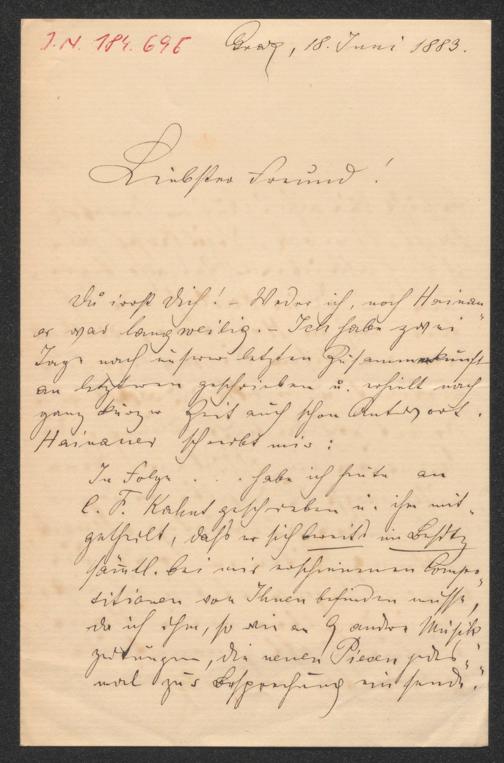 I. N. 184.696
Graz, 18. Juni 1883.
Liebster Freund!
Du irrst Dich! – Weder ich, noch Hainau-
er war langweilig. – Ich habe zwei
Tage nach unserer letzten Zusammenkunft
an letzteren geschrieben u. erhielt nach
ganz kurzer Zeit auch schon Antwort.
Hainauer schreibt mir:
In Folge . . . habe ich heute an
C. F. Kahnt geschrieben u. ihm mit-
getheilt, daß er sich bereits im Besitz
sämtl. bei mir erschienenen Compo-
sitionen von Ihnen befinden müsse,
da ich ihm, so wie an 9 andere Musik-
zeitungen, die neuen Piecen jedes-
mal zur Besprechung einsende."